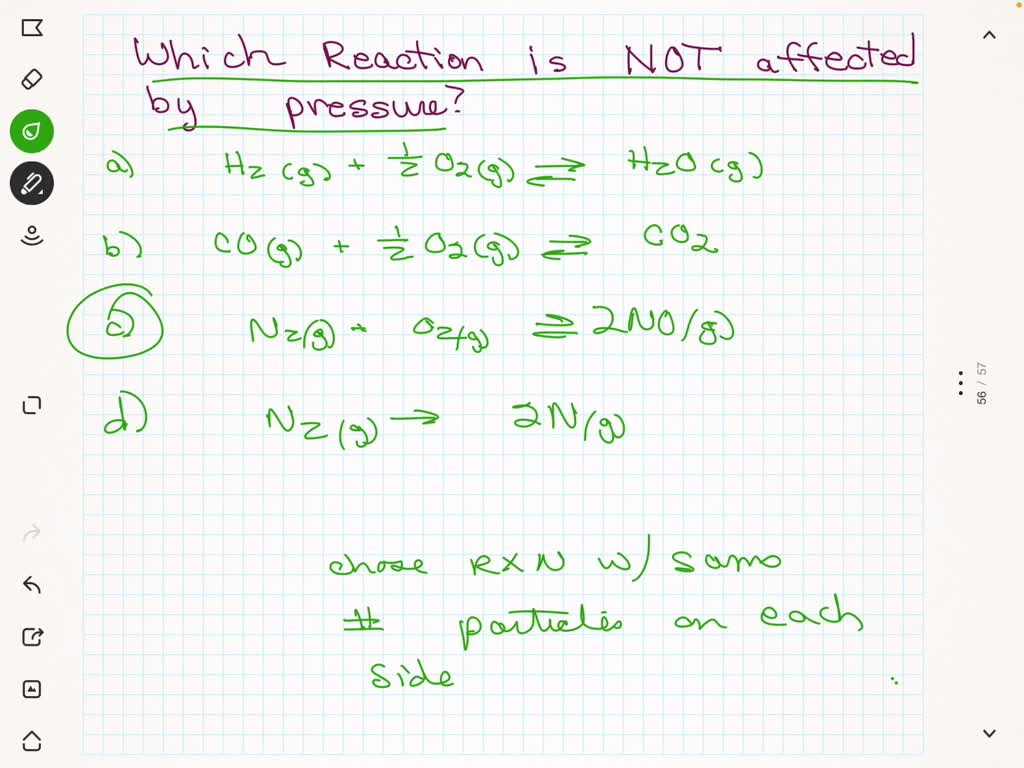 Which Reaction is NOT affected
by pressure?
a) H2 (g) + 1/2 O2(g) ⇌ H2O (g)
b) CO(g) + 1/2 O2(g) ⇌ CO2
c) N2(g) + O2(g) ⇌ 2NO(g)
d) N2(g) → 2N(g)
chose RXN w/ same
# particles on each
side
56 / 57